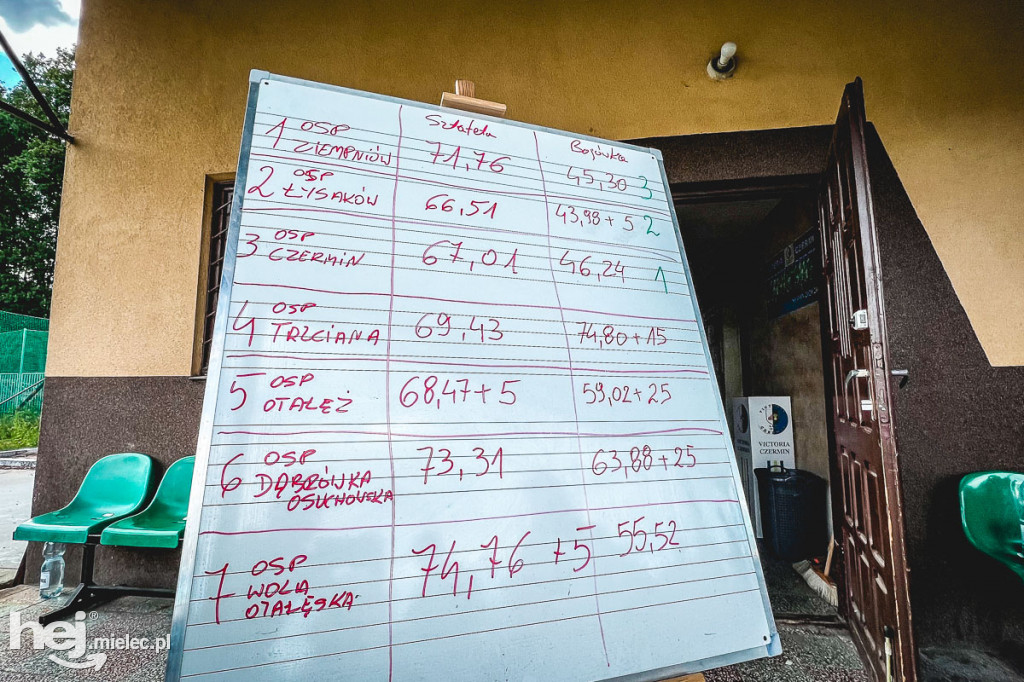 Sztafeta Bojówka
1 OSP
ZIEMPNIÓW 71,76 45,30 3
2 OSP
ŁYSAKÓW 66,51 43,98 + 5 2
3 OSP
CZERMIN 67,01 46,24 1
4 OSP
TRZCIANA 69,43 74,80 + 15
5 OSP
OTAŁĘŻ 68,47 + 5 59,02 + 25
6 OSP
DĄBRÓWKA
OSUCHOWSKA 73,31 63,88 + 25
7 OSP
WOLA
OTAŁĘSKA 74,76 +5 55,52
VICTORIA
CZERMIN
hej® .mielec.pl